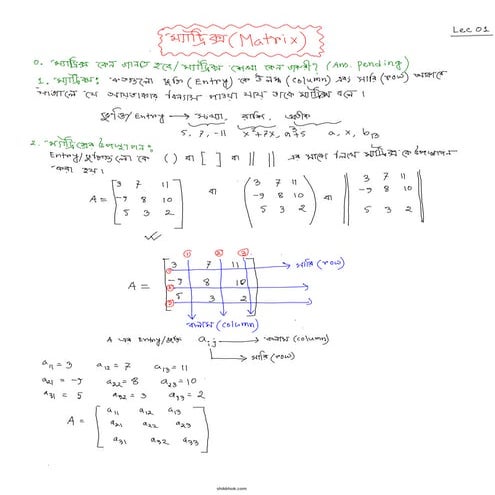 ম্যাট্রিক্স (Matrix)
Lec 01
0. ম্যাট্রিক্স কেন জানতে হবে/ ম্যাট্রিক্স শেখা কেন জরুরী? (Ans. pending)
1. ম্যাট্রিক্স: কতগুলো ভুক্তি (Entry) কে কলাম (column) এবং সারি (row) আকারে
সাজালে যে আয়তাকার বিন্যাস পাওয়া যায় তাকে ম্যাট্রিক্স বলে।
ভুক্তি/Entry → সংখ্যা, রাশি, প্রতীক
5, 7, -11 x²+7x, a³+5 a, x, b₁₃
2. ম্যাট্রিক্সের উপস্থাপন:
Entry/ভুক্তিগুলো কে ( ) বা [ ] বা || || এর মধ্যে লিখে ম্যাট্রিক্স কে উপস্থাপন
করা হয়।
A = [3 7 11 বা (3 7 11 বা ||3 7 11
-9 8 10 -9 8 10 -9 8 10
5 3 2] 5 3 2) 5 3 2||
① ② ③
A = [① 3 7 11 → সারি (row)
② -9 8 10
③ 5 3 2]
কলাম (column)
A এর Entry/ভুক্তি aᵢⱼ → কলাম (column)
→ সারি (row)
a₁₁ = 3 a₁₂ = 7 a₁₃ = 11
a₂₁ = -9 a₂₂ = 8 a₂₃ = 10
a₃₁ = 5 a₃₂ = 3 a₃₃ = 2
A = [a₁₁ a₁₂ a₁₃
a₂₁ a₂₂ a₂₃
a₃₁ a₃₂ a₃₃]